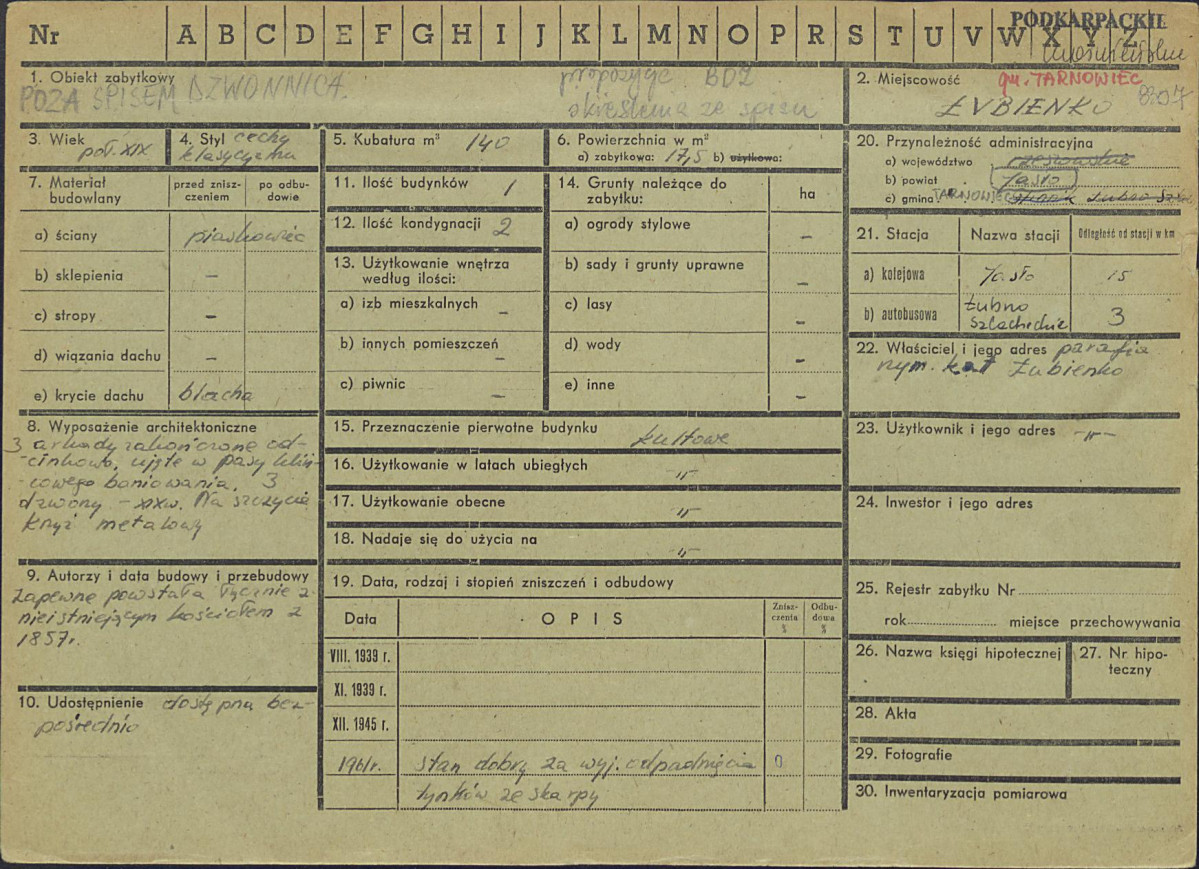 Nr A B C D E F G H I J K L M N O P R S T U V W X Y Z
PODKARPACKIE
1. Obiekt zabytkowy DZWONNICA.
POZA SPISEM
propozycje BDZ
skreślenia ze spisu
2. Miejscowość gm. TARNOWIEC
ŁUBIENKO
3. Wiek poł. XIX
4. Styl cechy
klasycyzmu
5. Kubatura m³ 140
6. Powierzchnia w m²
a) zabytkowa: 17,5 b) użytkowa:
7. Materiał budowlany
przed znisz-
czeniem
po odbu-
dowie
a) ściany piaskowiec
b) sklepienia –
c) stropy –
d) wiązania dachu –
e) krycie dachu blacha
8. Wyposażenie architektoniczne
3 arkady zakończone od-
-cinkowo, ujęte w pasy klin-
-cowego boniowania, 3
dzwony – XIX w. Na szczycie
krzyż metalowy
9. Autorzy i data budowy i przebudowy
Zapewne powstała łącznie z
nieistniejącym kościołem z
1857r.
10. Udostępnienie dostępna bez-
pośrednio
11. Ilość budynków 1
12. Ilość kondygnacji 2
13. Użytkowanie wnętrza
według ilości:
a) izb mieszkalnych –
b) innych pomieszczeń –
c) piwnic –
14. Grunty należące do
zabytku:
ha
a) ogrody stylowe –
b) sady i grunty uprawne –
c) lasy –
d) wody –
e) inne –
15. Przeznaczenie pierwotne budynku kultowe
16. Użytkowanie w latach ubiegłych -"-
17. Użytkowanie obecne -"-
18. Nadaje się do użycia na -"-
19. Data, rodzaj i stopień zniszczeń i odbudowy
Data OPIS Znisz-
czenia
% Odbu-
dowa
%
VIII. 1939 r.
XI. 1939 r.
XII. 1945 r.
1961r. stan dobry za wyj. odpadnięcia 0
tynków ze skarpy
20. Przynależność administracyjna
a) województwo rzeszowskie
b) powiat Jasło
c) gmina TARNOWIEC
21. Stacja Nazwa stacji Odległość od stacji w km
a) kolejowa Jasło 15
b) autobusowa Łubno
Szlacheckie 3
22. Właściciel i jego adres parafia
rzym. kat Łubienko
23. Użytkownik i jego adres -"-
24. Inwestor i jego adres
25. Rejestr zabytku Nr
rok miejsce przechowywania
26. Nazwa księgi hipotecznej
27. Nr hipo-
teczny
28. Akta
29. Fotografie
30. Inwentaryzacja pomiarowa